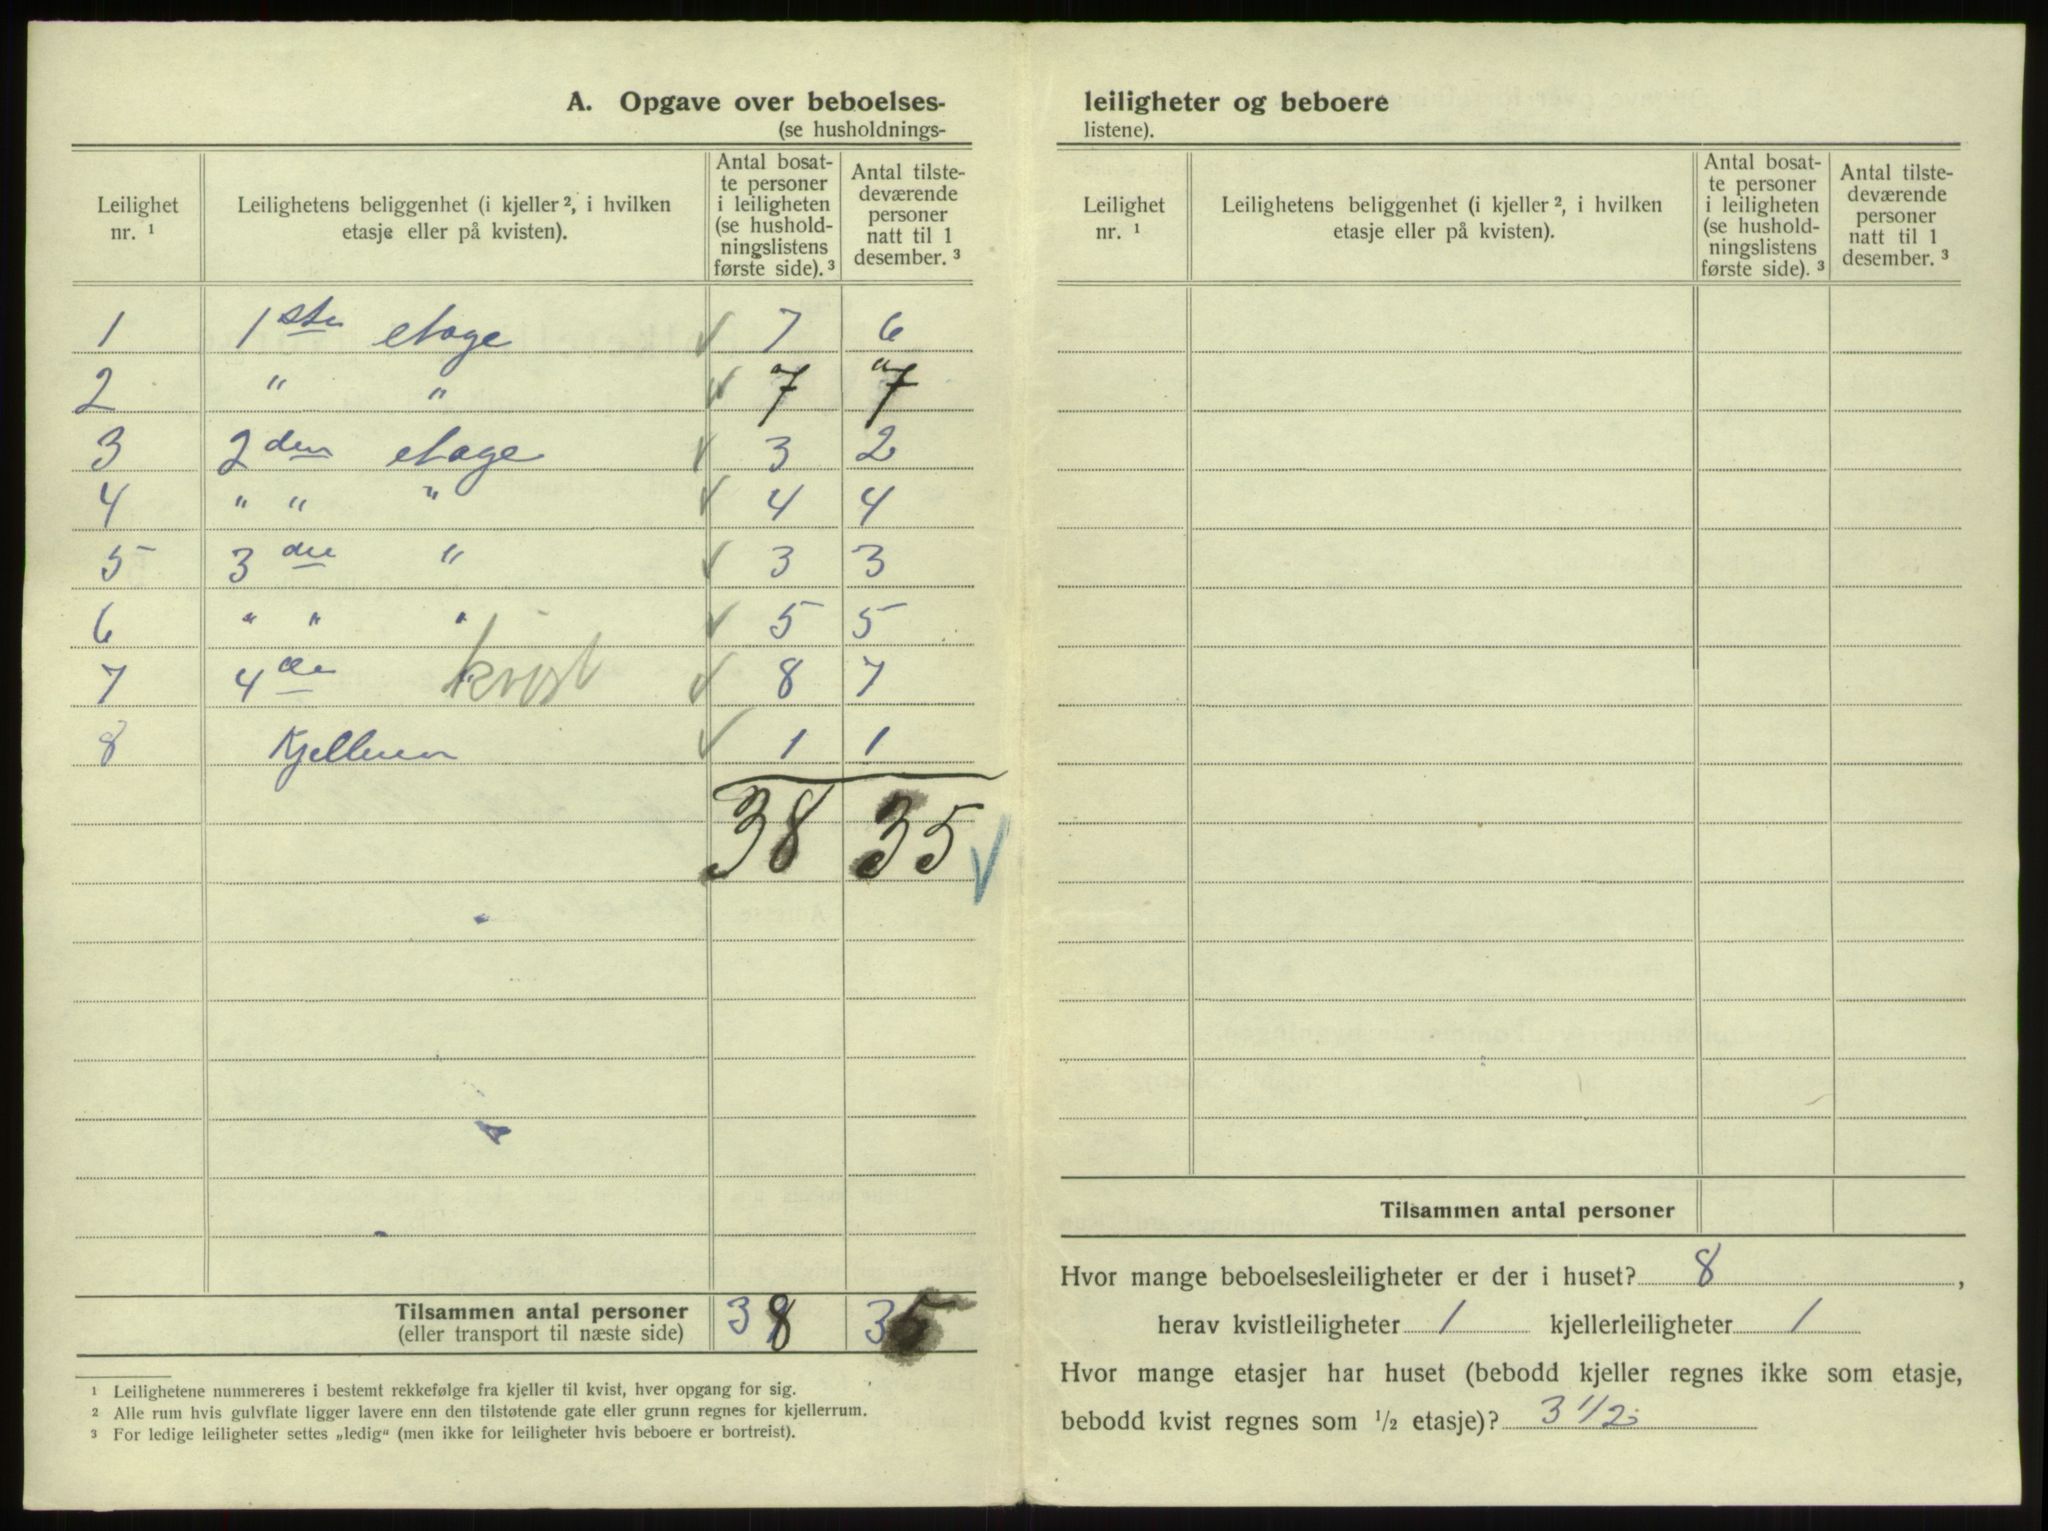 A. Opgave over beboelses-
(se husholdnings-
Leilighet nr. ¹
Leilighetens beliggenhet (i kjeller ², i hvilken etasje eller på kvisten).
Antal bosat-
te personer
i leiligheten
(se hushold-
ningslistens
første side). ³
Antal tilste-
deværende
personer
natt til 1
desember. ³
1 1ste etage 7 6
2 " " 7 7
3 2den etage 3 2
4 " " " 4 4
5 3die " 3 3
6 " " " 5 5
7 4de " kvist 8 7
8 Kjelleren 1 1
38 35
Tilsammen antal personer 38 35
(eller transport til næste side)
¹ Leilighetene nummereres i bestemt rekkefølge fra kjeller til kvist, hver opgang for sig.
² Alle rum hvis gulvflate ligger lavere enn den tilstøtende gate eller grunn regnes for kjellerrum.
³ For ledige leiligheter settes „ledig“ (men ikke for leiligheter hvis beboere er bortreist).
leiligheter og beboere
listene).
Leilighet nr. ¹
Leilighetens beliggenhet (i kjeller ², i hvilken etasje eller på kvisten).
Antal bosat-
te personer
i leiligheten
(se hushold-
ningslistens
første side). ³
Antal tilste-
deværende
personer
natt til 1
desember. ³
Tilsammen antal personer
Hvor mange beboelsesleiligheter er der i huset? 8,
herav kvistleiligheter 1 kjellerleiligheter 1
Hvor mange etasjer har huset (bebodd kjeller regnes ikke som etasje,
bebodd kvist regnes som 1/2 etasje)? 3 1/2